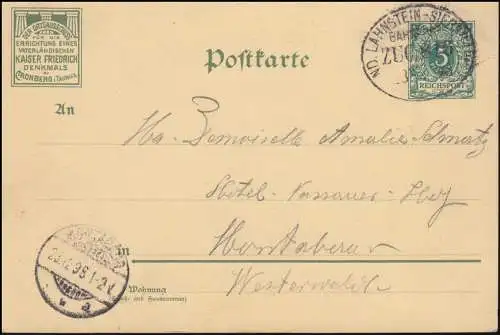 DER ORTSAUSSCHUSS
FÜR DIE
ERRICHTUNG EINES
VATERLÄNDISCHEN
KAISER FRIEDRICH
DENKMALS
IN
CRONBERG I. TAUNUS.
Postkarte
ND. LAHNSTEIN-SIE
BAHN
ZUG
5
REICHSPOST
An
Demoiselle Amalie Schmatz
Hotel Nassauer-Hof
in
Montabaur
Westerwald
Wohnung
(Straße und Hausnummer)
1-2 N.